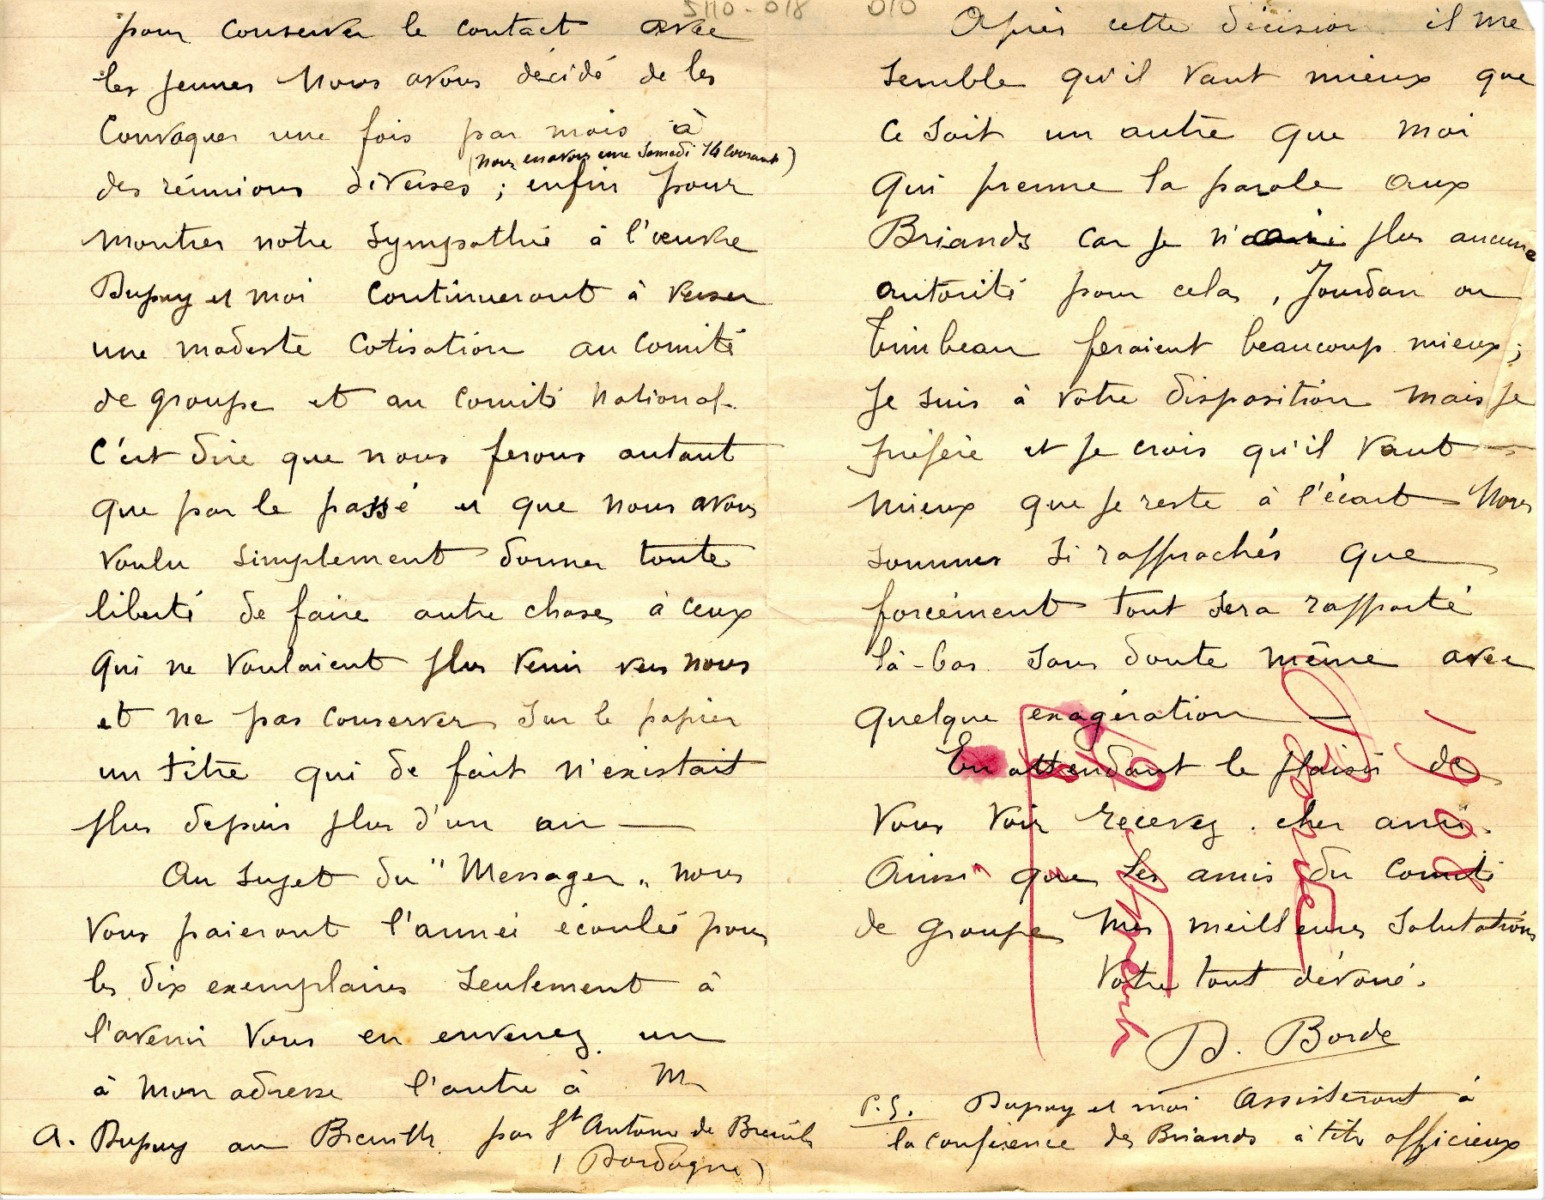 5110-018 010
pour conserver le contact avec
les jeunes nous avons décidé de les
convoquer une fois par mois à
(nous en avons une samedi 14 courant)
des réunions diverses ; enfin pour
montrer notre sympathie à l'œuvre
Dupuy et moi continueront à verser
une modeste cotisation au comité
de groupe et au comité national.
C'est dire que nous ferons autant
que par le passé et que nous avons
voulu simplement donner toute
liberté de faire autre chose à ceux
qui ne voulaient plus venir vers nous
et ne pas conserver sur le papier
un titre qui de fait n'existait
plus depuis plus d'un an —
Au sujet du "Messager" nous
vous paieront l'année écoulée pour
les dix exemplaires seulement à
l'avenir vous en enverrez un
à mon adresse l'autre à M
A. Dupuy au Breuilh par St Antoine de Breuilh
(Dordogne)
Après cette décision il me
semble qu'il vaut mieux que
ce soit un autre que moi
qui prenne la parole aux
Briands car je n'ai plus aucune
autorité pour cela, Jourdan ou
Timbeau feraient beaucoup mieux ;
je suis à votre disposition mais je
préfère et je crois qu'il vaut
mieux que je reste à l'écart — Nous
sommes si rapprochés que
forcément tout sera rapporté
là-bas sans doute même avec
quelque exagération —
En attendant le plaisir de
vous voir recevez cher ami.
Ainsi que les amis du comité
de groupe mes meilleures salutations
Votre tout dévoué.
D. Borde
P.S. Dupuy et moi assisteront à
la conférence des Briands à titre officieux